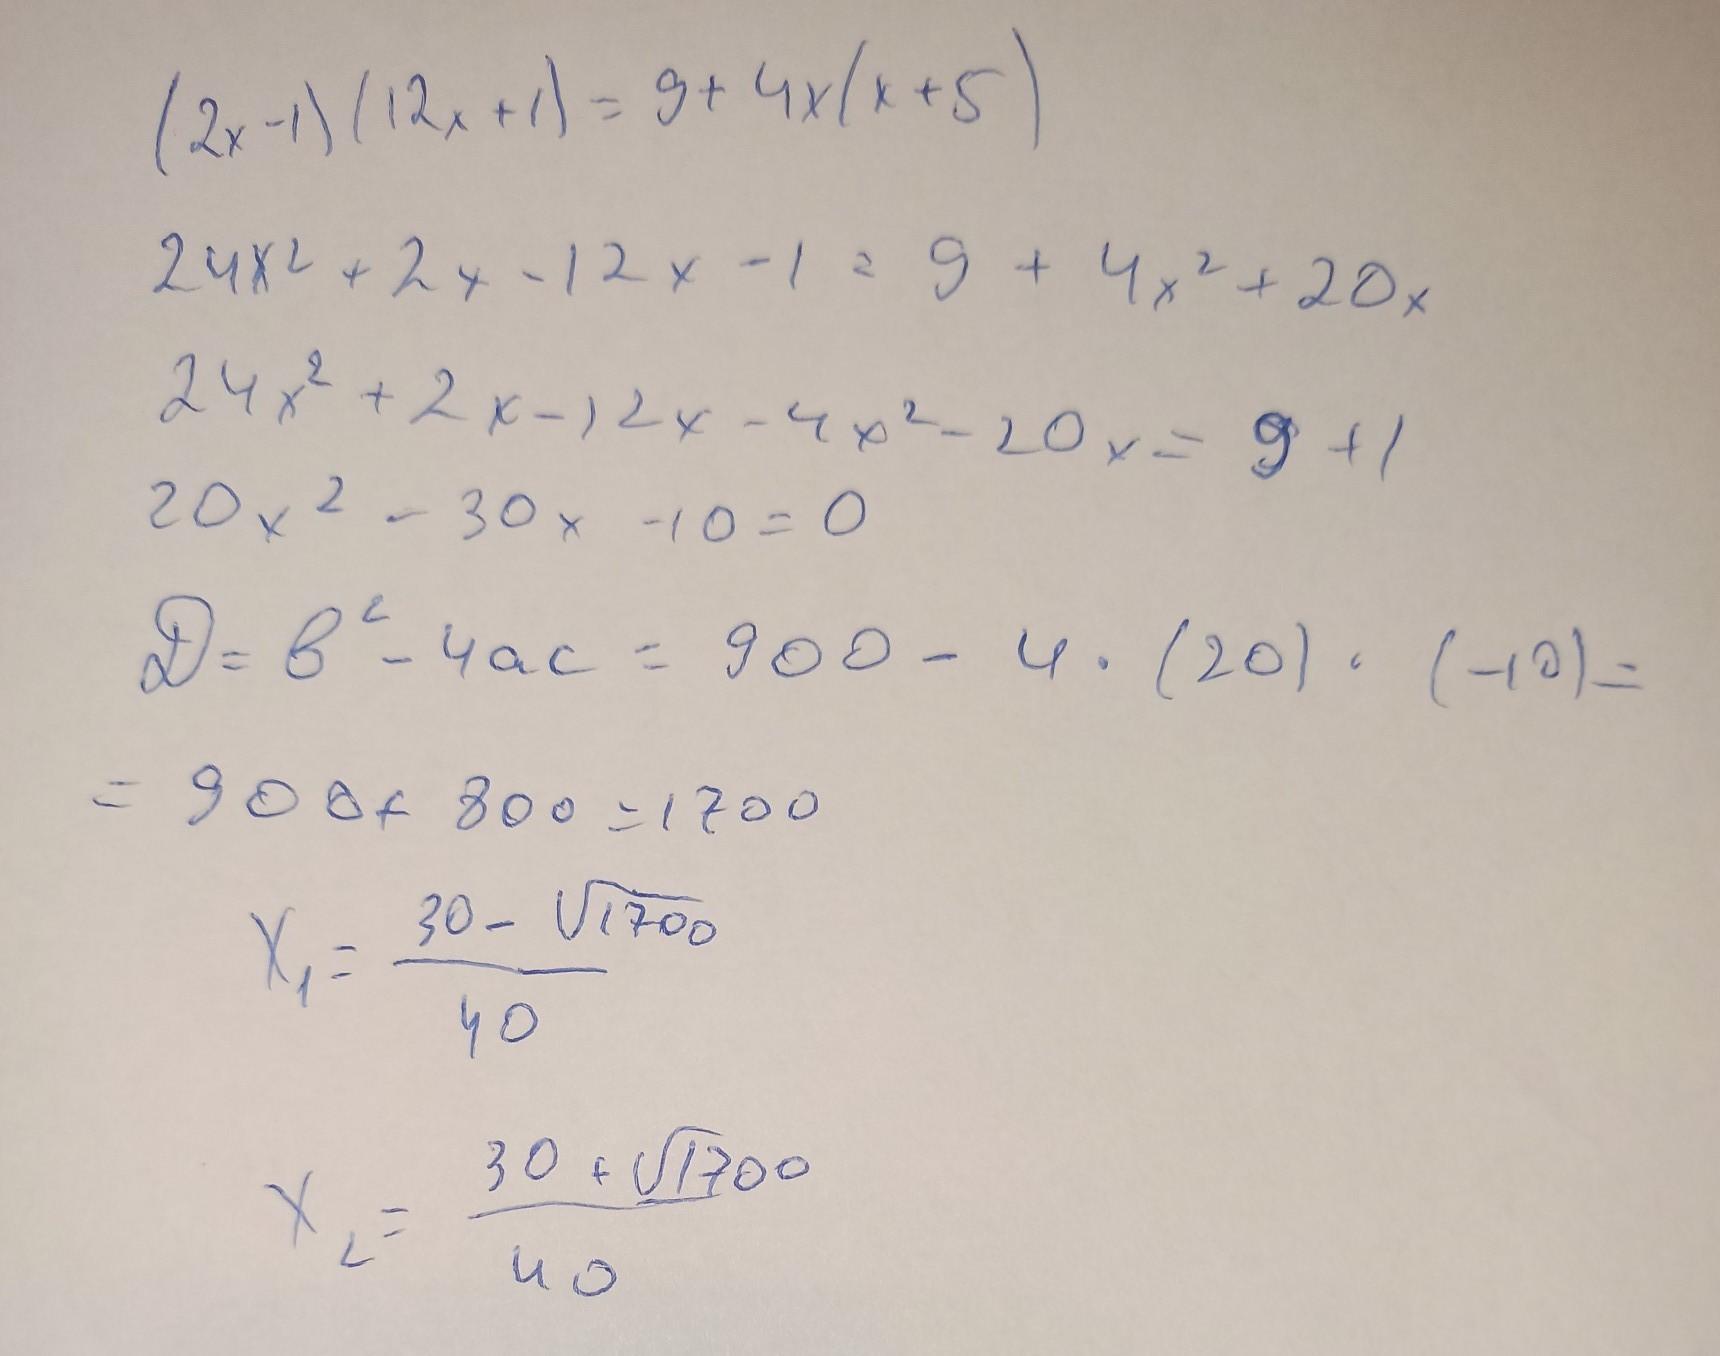 (2x-1)(12x+1)=9+4x(x+5)
24x²+2x-12x-1=9+4x²+20x
24x²+2x-12x-4x²-20x=9+1
20x²-30x-10=0
D=b²-4ac=900-4·(20)·(-10)=
=900+800=1700
X₁=(30-√1700)/40
X₂=(30+√1700)/40